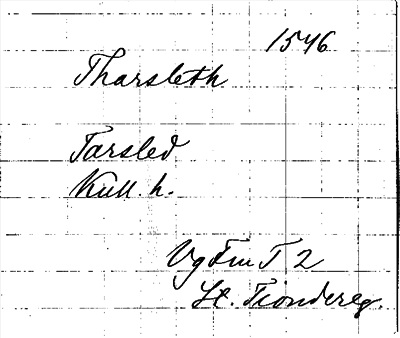 1546
Tharsleth
Tarsled
Kull. h.
Vg Fm T 2
St. Tiondereg.